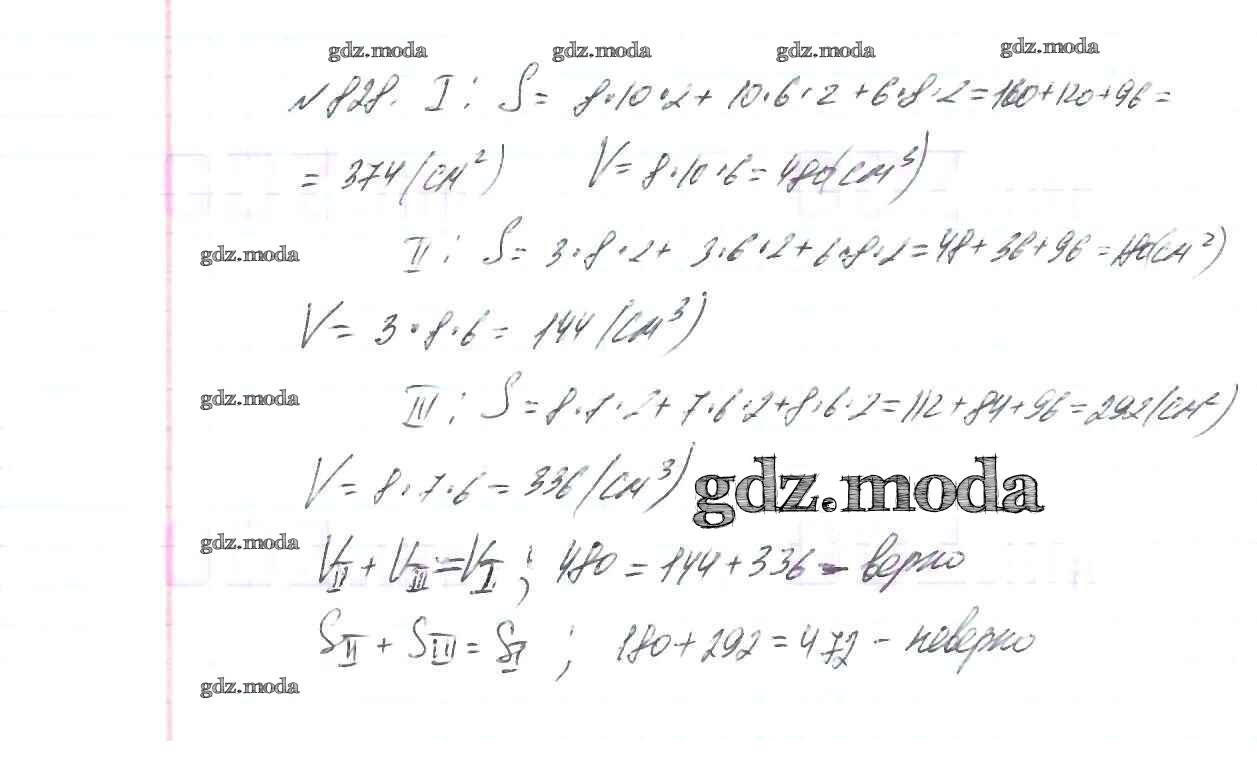 gdz.moda gdz.moda gdz.moda gdz.moda
№828. I: S = 8·10·2 + 10·6·2 + 6·8·2 = 160+120+96 =
= 374 (см²) V = 8·10·6 = 480(см³)
gdz.moda II: S = 3·8·2 + 3·6·2 + 6·8·2 = 48 + 36 + 96 = 180(см²)
V = 3·8·6 = 144 (см³)
gdz.moda III: S = 8·7·2 + 7·6·2 + 8·6·2 = 112 + 84 + 96 = 292 (см²)
V = 8·7·6 = 336 (см³) gdz.moda
gdz.moda V_II + V_III = V_I; 480 = 144 + 336 - верно
S_II + S_III = S_I; 180 + 292 = 472 - неверно
gdz.moda